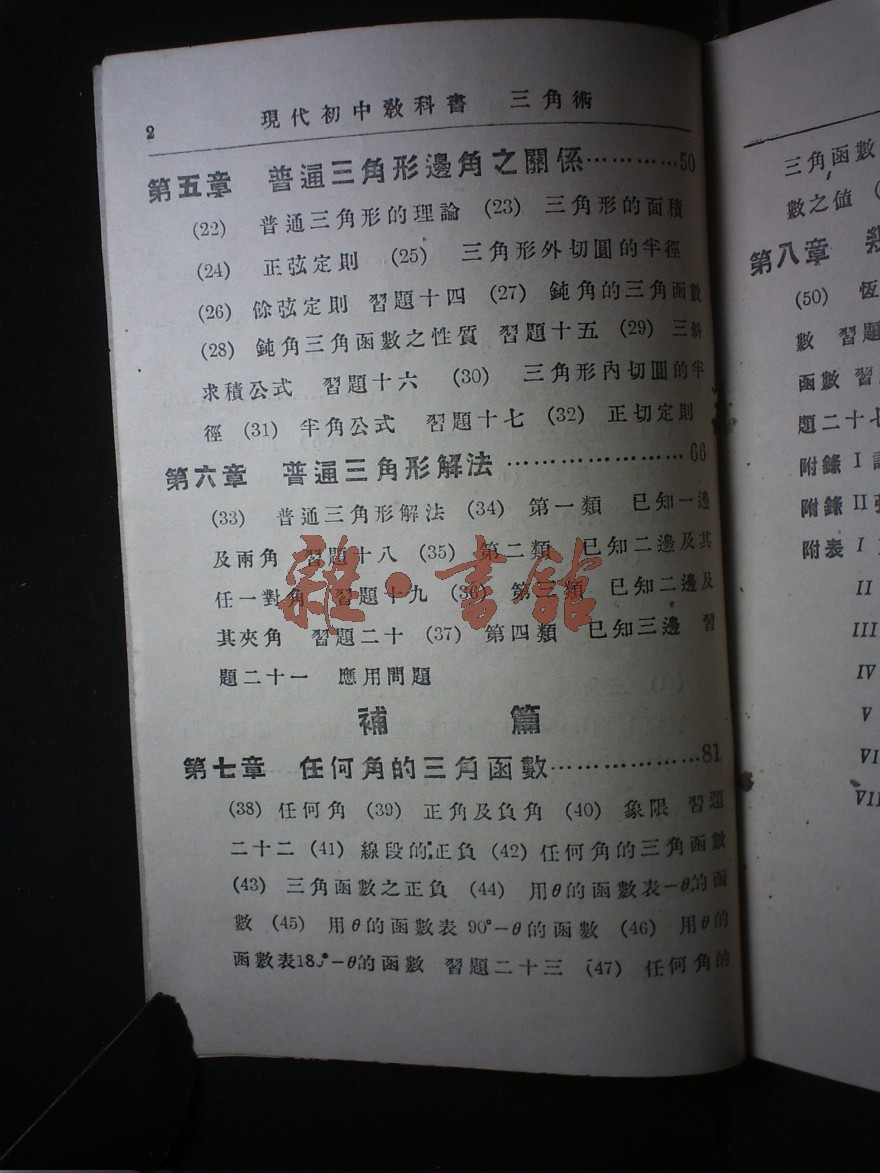 2
現代初中教科書 三角術
第五章 普通三角形邊角之關係…………50
(22) 普通三角形的理論 (23) 三角形的面積
(24) 正弦定則 (25) 三角形外切圓的半徑
(26) 餘弦定則 習題十四 (27) 鈍角的三角函數
(28) 鈍角三角函數之性質 習題十五 (29) 三斜
求積公式 習題十六 (30) 三角形內切圓的半
徑 (31) 半角公式 習題十七 (32) 正切定則
第六章 普通三角形解法…………………66
(33) 普通三角形解法 (34) 第一類 已知一邊
及兩角 習題十八 (35) 第二類 已知二邊及其
任一對角 習題十九 (36) 第三類 已知二邊及
其夾角 習題二十 (37) 第四類 已知三邊 習
題二十一 應用問題
補篇
第七章 任何角的三角函數………………81
(38) 任何角 (39) 正角及負角 (40) 象限 習題
二十二 (41) 線段的正負 (42) 任何角的三角函數
(43) 三角函數之正負 (44) 用θ的函數表-θ的函
數 (45) 用θ的函數表90°-θ的函數 (46) 用θ的
函數表18 °-θ的函數 習題二十三 (47) 任何角的
雜·書館
三角函數
數之值
第八章
(50) 恆
數 習題
函數 習
題二十七
附錄 I
附錄 II
附表 I
II
III
IV
V
VI
VII